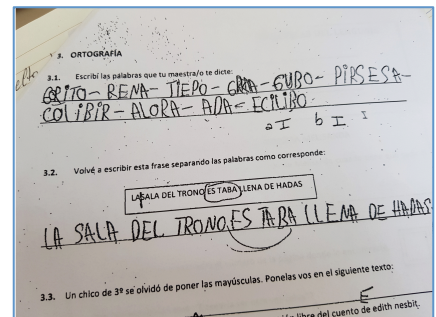 3. ORTOGRAFÍA
3.1. Escribí las palabras que tu maestra/o te dicte:
GRITO - RENA - TIEPO - - GUBO - PIRSESA -
COLIBIR - ALORA - ADA - ECILIBO
a I b I I
3.2. Volvé a escribir esta frase separando las palabras como corresponde:
LASALA DEL TRONO ES TABA LLENA DE HADAS
LA SALA DEL TRONO, ES TABA LLENA DE HADAS
3.3. Un chico de 3º se olvidó de poner las mayúsculas. Ponelas vos en el siguiente texto:
E
libre del cuento de edith nesbit.